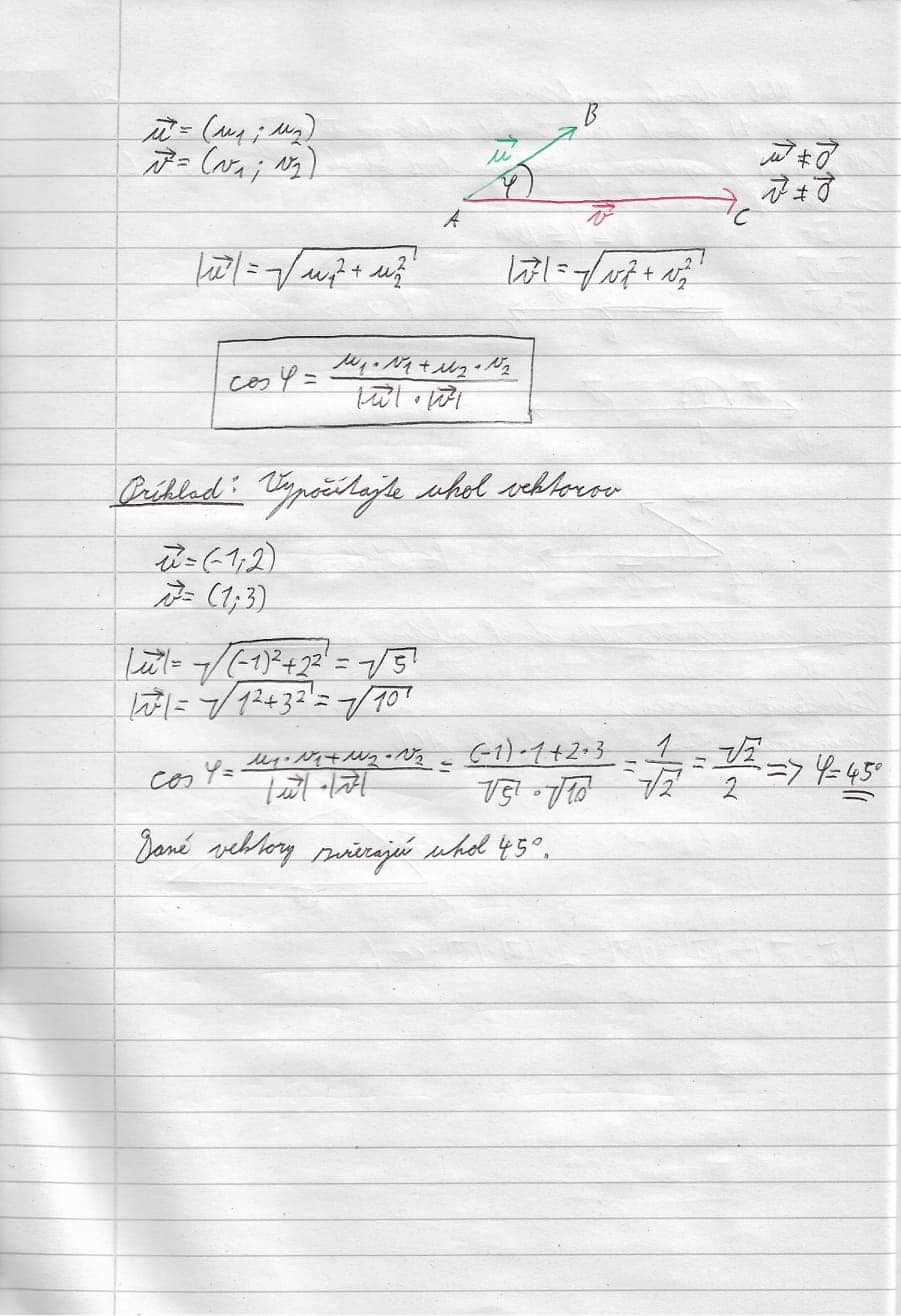 u⃗ = (u₁; u₂)
v⃗ = (v₁; v₂)
B
u⃗
φ
A
v⃗
C
u⃗ ≠ 0⃗
v⃗ ≠ 0⃗
|u⃗| = √(u₁² + u₂²)
|v⃗| = √(v₁² + v₂²)
cos φ = (u₁·v₁ + u₂·v₂)/(|u⃗|·|v⃗|)
Príklad: Vypočítajte uhol vektorov
u⃗ = (-1; 2)
v⃗ = (1; 3)
|u⃗| = √((-1)² + 2²) = √5
|v⃗| = √(1² + 3²) = √10
cos φ = (u₁·v₁ + u₂·v₂)/(|u⃗|·|v⃗|) = ((-1)·1 + 2·3)/(√5·√10) = 1/√2 = √2/2 => φ = 45°
Dané vektory zvierajú uhol 45°.